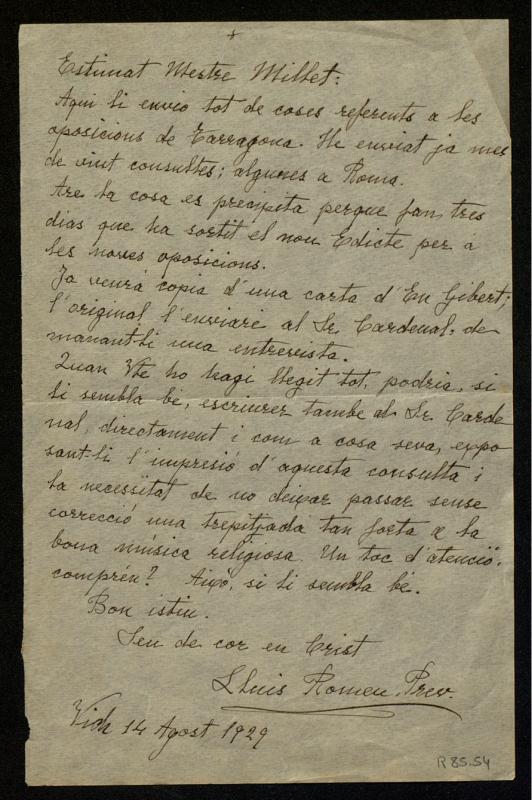 Estimat Mestre Millet:
Aqui li envio tot de coses referents a les
oposicions de Tarragona. He enviat ja mes
de vint consultes; algunes a Roma.
Are la cosa es precipita perque fan tres
dias que ha sortit el nou Edicte per a
les noves oposicions.
Ja veurá copia d'una carta d'En Gibert;
l'original l'enviaré al Sr. Cardenal, de-
manant-li una entrevista.
Quan Vte ho hagi llegit tot, podria, si
li sembla bé, escriurer també al Sr. Carde
nal, directament i com a cosa seva, expo
sant-li l'impresió d'aquesta consulta i
la necessitat de no deixar passar sense
correcció una trepitjada tan forta a la
bona música religiosa. Un toc d'atenció.
comprén? Aixó, si li sembla bé.
Bon istiu.
Seu de cor en Crist
Lluis Romeu, Prev.
Vich 14 Agost 1929
R 85.54